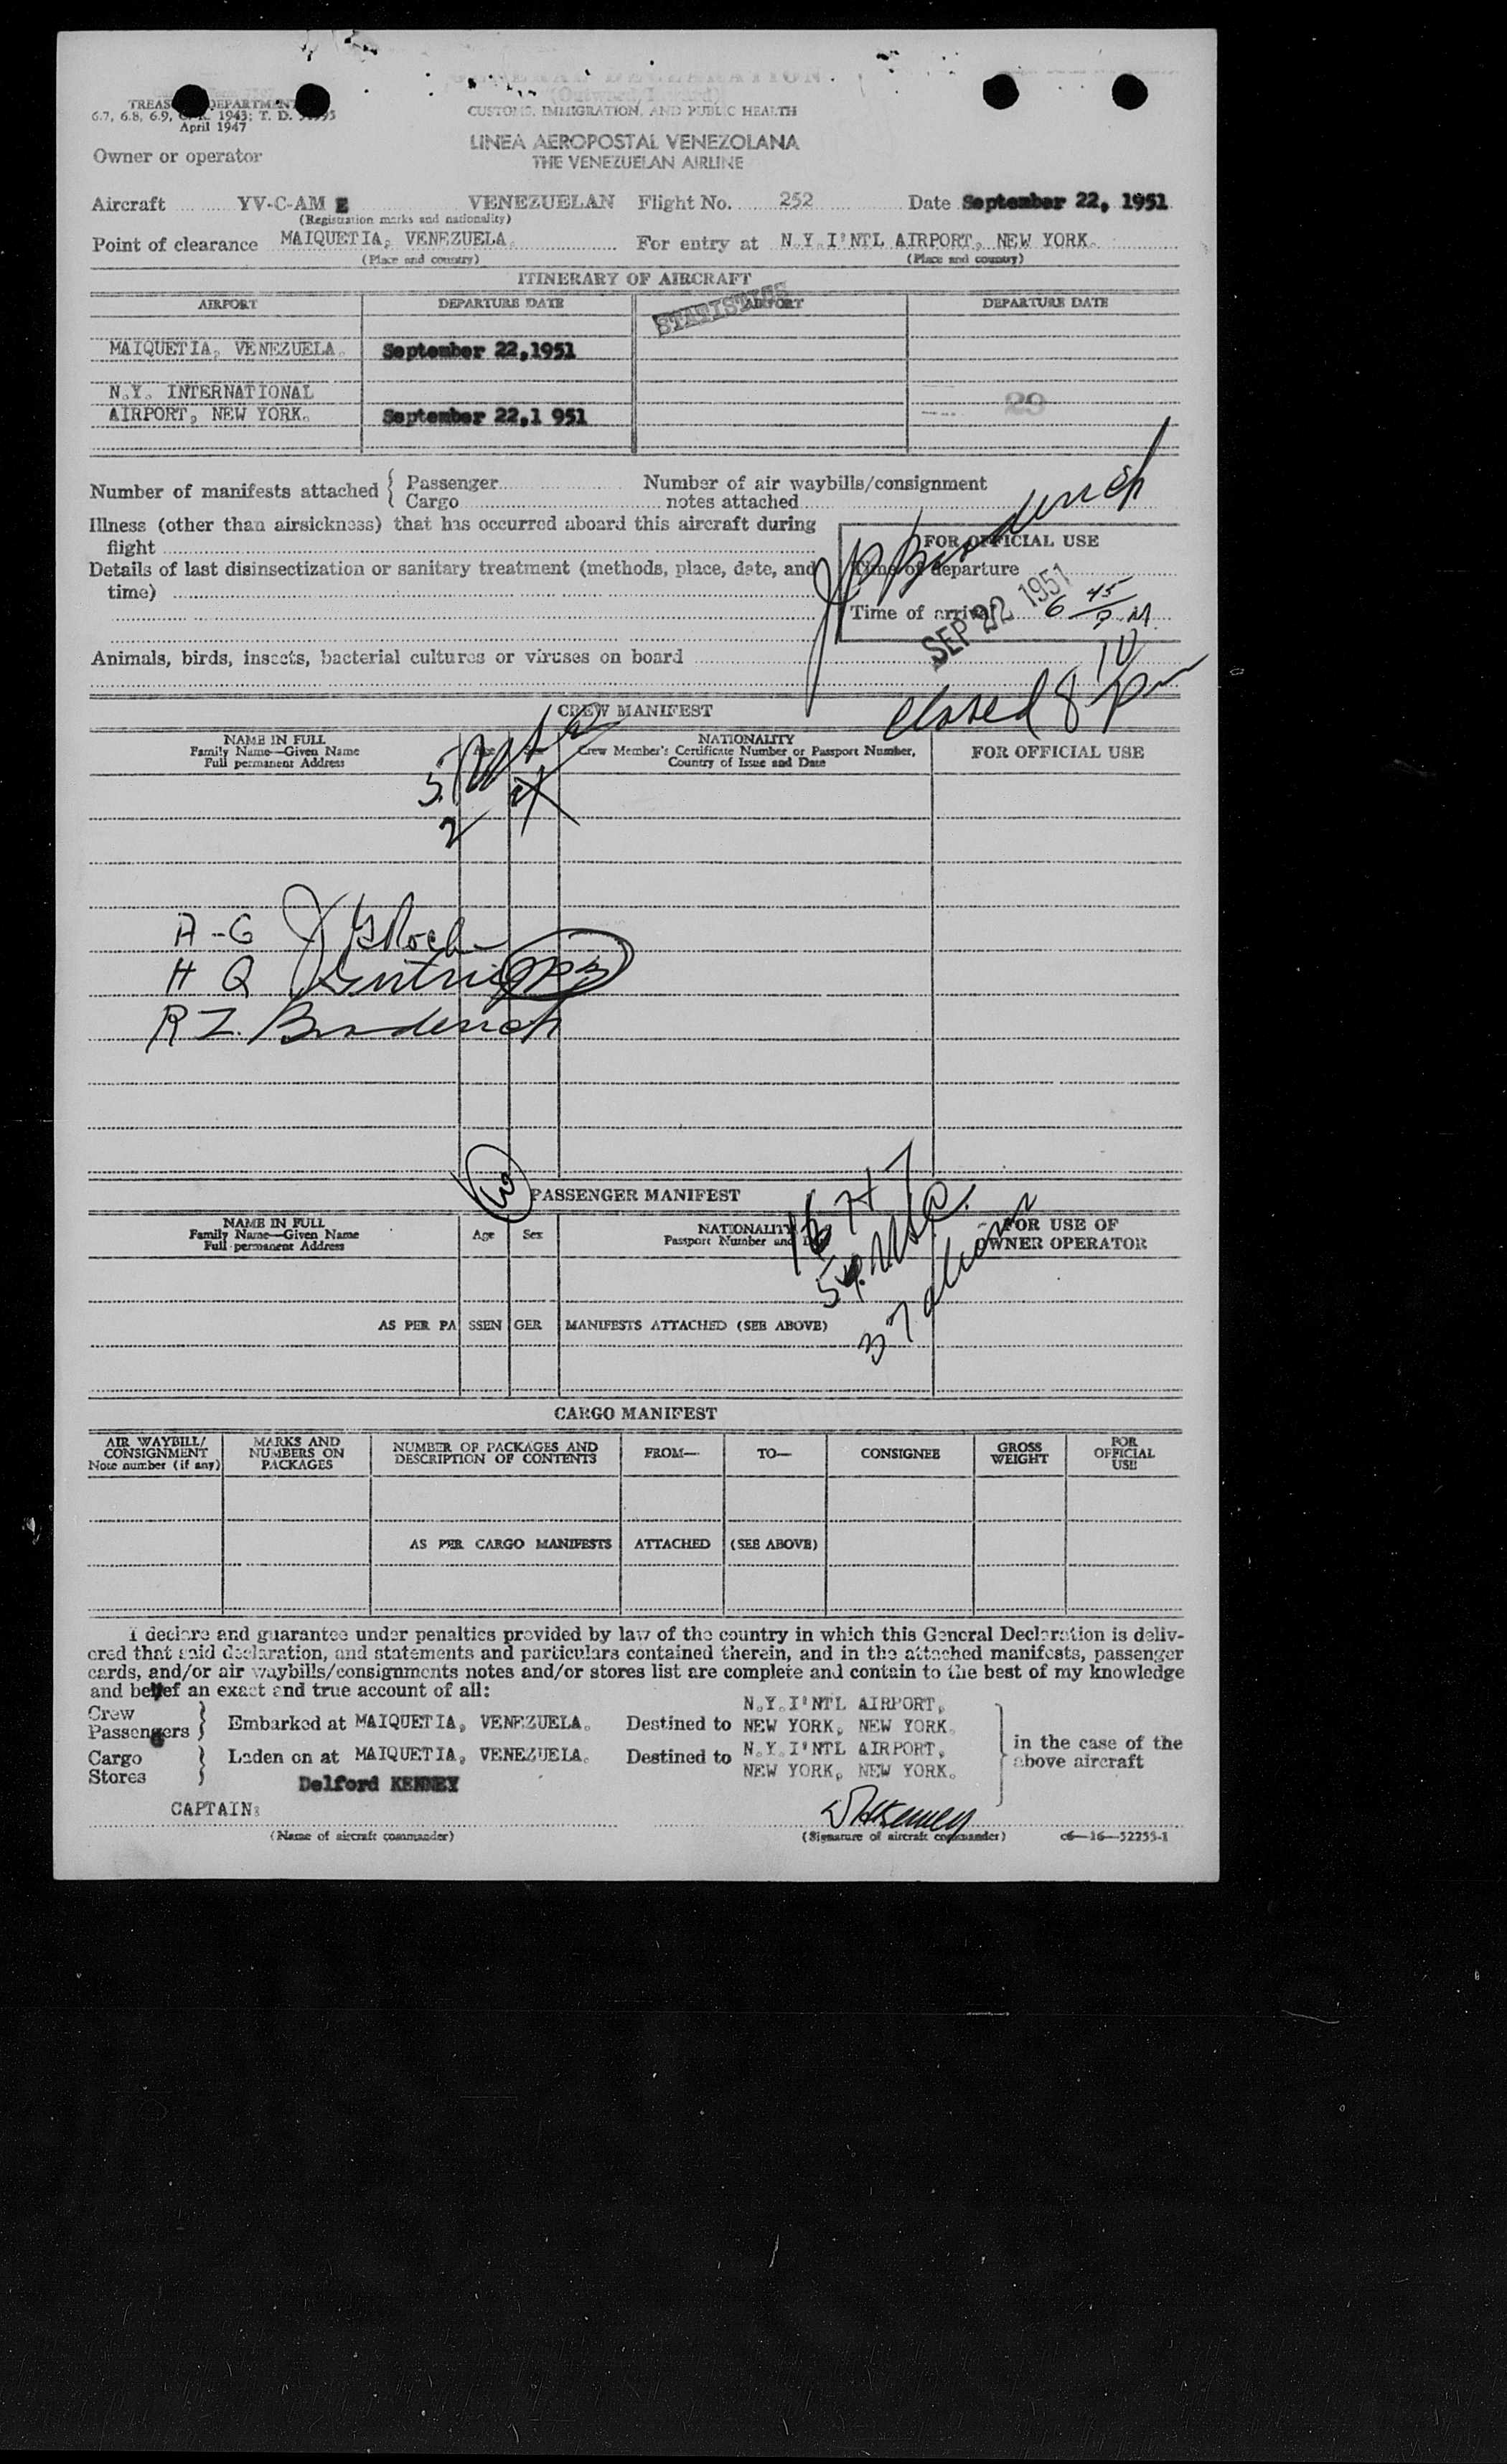 GENERAL DECLARATION
(Outward/Inward)
TREASURY DEPARTMENT
6.7, 6.8, 6.9, 1943; T. D.
April 1947
CUSTOMS, IMMIGRATION, AND PUBLIC HEALTH
LINEA AEROPOSTAL VENEZOLANA
THE VENEZUELAN AIRLINE
Owner or operator
Aircraft YV-C-AM E VENEZUELAN Flight No. 252 Date September 22, 1951
(Registration marks and nationality)
Point of clearance MAIQUETIA, VENEZUELA. For entry at N.Y.I'NTL AIRPORT, NEW YORK.
(Place and country) (Place and country)
ITINERARY OF AIRCRAFT
AIRPORT DEPARTURE DATE AIRPORT DEPARTURE DATE
STATISTICS
MAIQUETIA, VENEZUELA. September 22,1951
N.Y. INTERNATIONAL
29
AIRPORT, NEW YORK. September 22,1 951
Number of manifests attached { Passenger Number of air waybills/consignment
Cargo notes attached
Illness (other than airsickness) that has occurred aboard this aircraft during
flight
FOR OFFICIAL USE
Details of last disinsectization or sanitary treatment (methods, place, date, and
time)
Time of departure
Time of arrival 6 45 P M
SEP 22 1951
Animals, birds, insects, bacterial cultures or viruses on board
closed 8 10 pm
CREW MANIFEST
NAME IN FULL
Family Name—Given Name
Full permanent Address
Age Sex
NATIONALITY
Crew Member's Certificate Number or Passport Number,
Country of Issue and Date
FOR OFFICIAL USE
5
2
A-G
H Q
R I. Broderick
PASSENGER MANIFEST
NAME IN FULL
Family Name—Given Name
Full permanent Address
Age Sex
NATIONALITY
Passport Number and
FOR USE OF
OWNER OPERATOR
AS PER PASSENGER MANIFESTS ATTACHED (SEE ABOVE)
CARGO MANIFEST
AIR WAYBILL/
CONSIGNMENT
Note number (if any)
MARKS AND
NUMBERS ON
PACKAGES
NUMBER OF PACKAGES AND
DESCRIPTION OF CONTENTS
FROM— TO— CONSIGNEE
GROSS
WEIGHT
FOR
OFFICIAL
USE
AS PER CARGO MANIFESTS ATTACHED (SEE ABOVE)
I declare and guarantee under penalties provided by law of the country in which this General Declaration is deliv-
ered that said declaration, and statements and particulars contained therein, and in the attached manifests, passenger
cards, and/or air waybills/consignments notes and/or stores list are complete and contain to the best of my knowledge
and belief an exact and true account of all:
Crew
Passengers } Embarked at MAIQUETIA, VENEZUELA. Destined to N.Y.I'NTL AIRPORT,
NEW YORK, NEW YORK.
Cargo
Stores } Laden on at MAIQUETIA, VENEZUELA. Destined to N.Y.I'NTL AIRPORT,
NEW YORK, NEW YORK.
in the case of the
above aircraft
Delford KENNEY
CAPTAIN:
(Name of aircraft commander) (Signature of aircraft commander) c6—16—52255-1